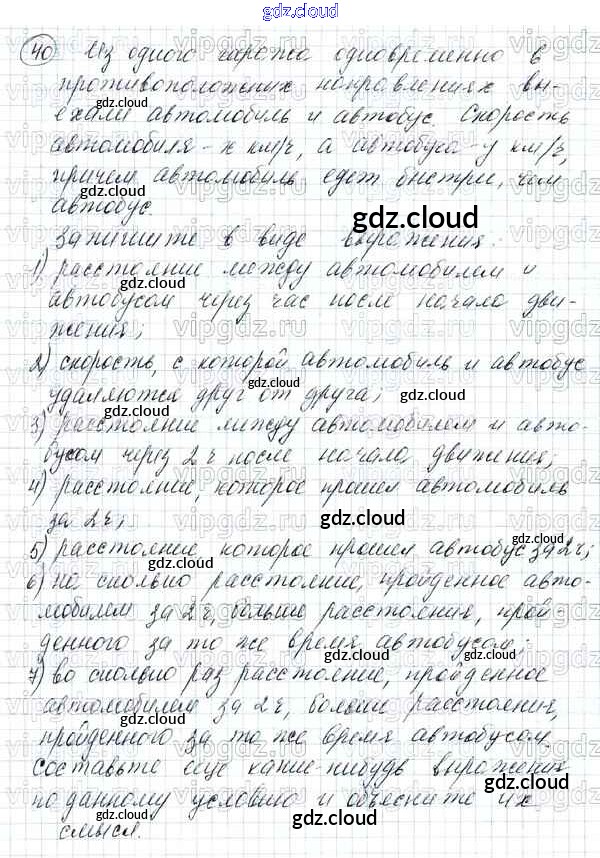 gdz.cloud
40 Из одного гаража одновременно в
противоположных направлениях вы-
ехали автомобиль и автобус. Скорость
автомобиля - x км/ч, а автобуса - y км/ч,
причем автомобиль едет быстрее, чем
автобус.
Запишите в виде выражения:
1) расстояние между автомобилем и
автобусом через час после начала дви-
жения;
2) скорость, с которой автомобиль и автобус
удаляются друг от друга;
3) расстояние между автомобилем и авто-
бусом через 2 ч после начала движения;
4) расстояние, которое прошел автомобиль
за 2 ч;
5) расстояние, которое прошел автобус за 2 ч;
6) на сколько расстояние, пройденное авто-
мобилем за 2 ч, больше расстояния, прой-
денного за то же время автобусом;
7) во сколько раз расстояние, пройденное
автомобилем за 2 ч, больше расстояния,
пройденного за то же время автобусом.
Составьте еще какие-нибудь выражения
по данному условию и объясните их
смысл.